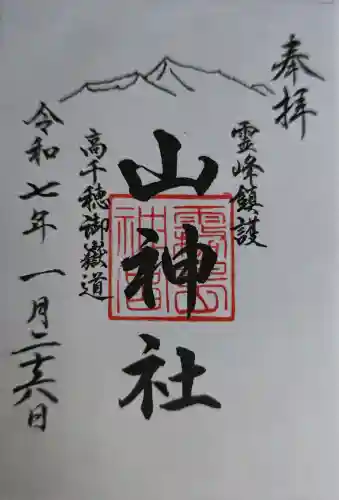 奉拝
霊峰鎮護
山神社
高千穂御嶽道
令和七年一月二十六日